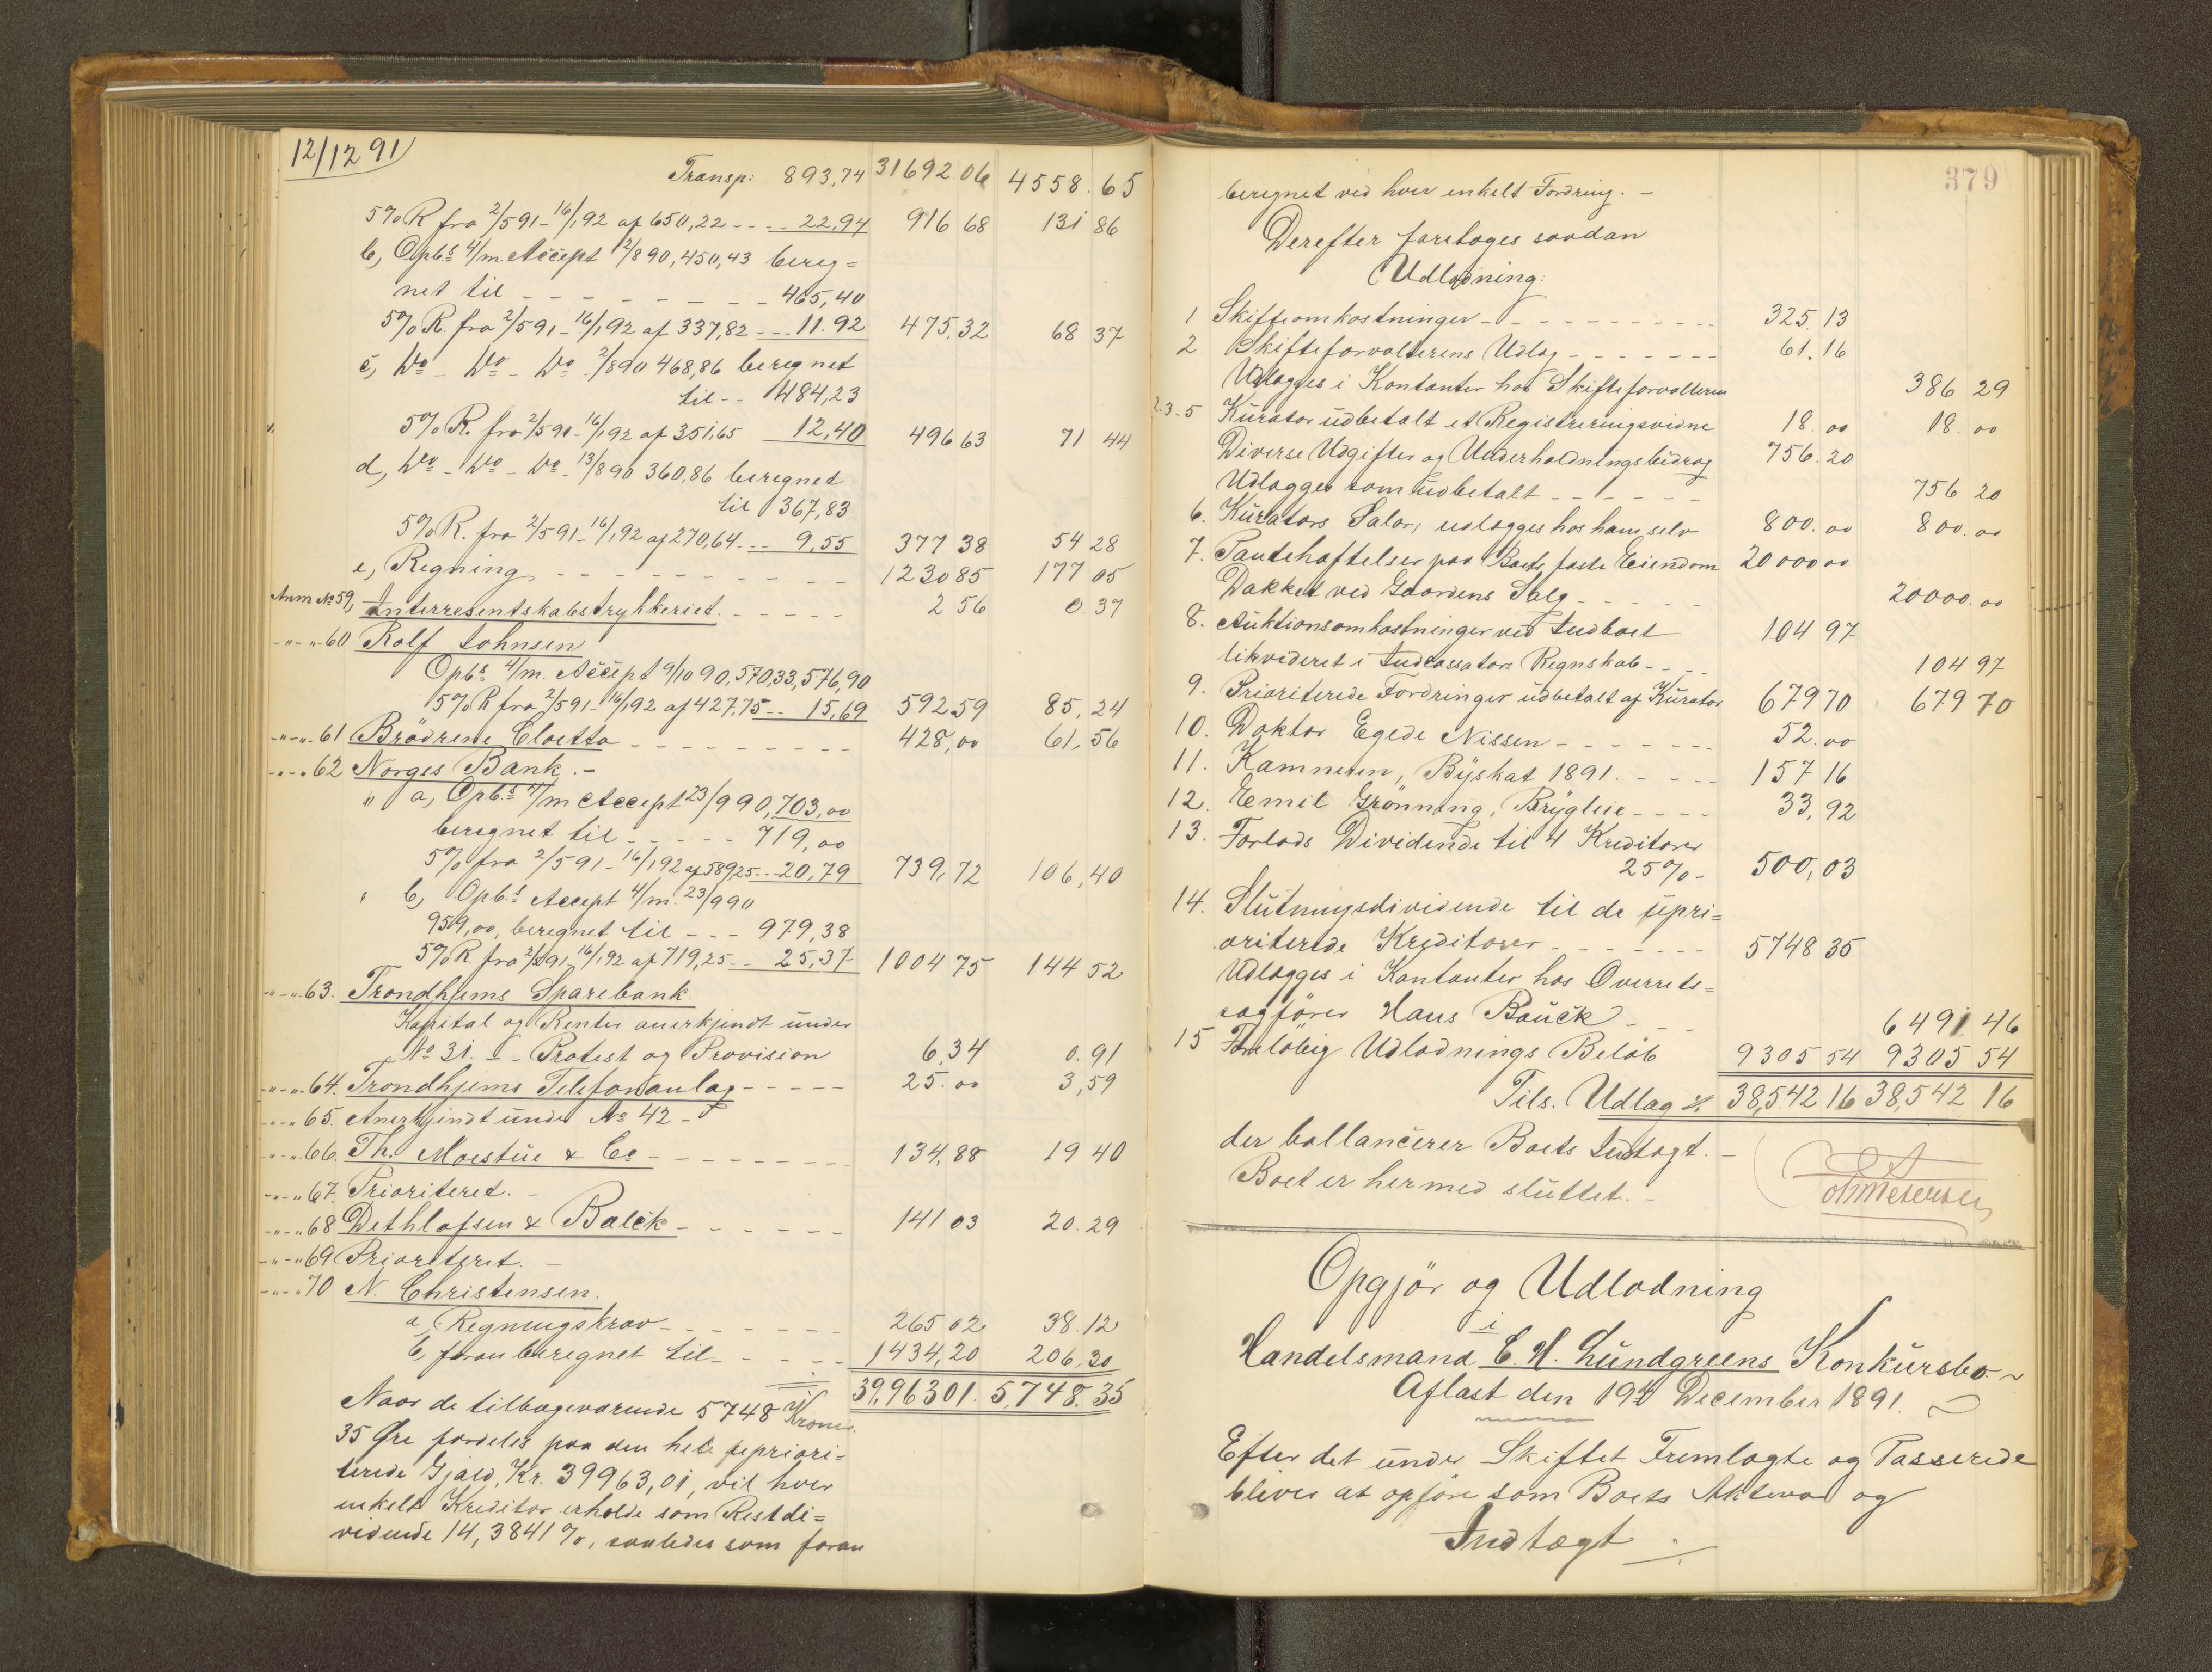 12/12 91
Transp: 893,74 31692 06 4558.65
5% R fra 2/5 91 - 16/1 92 af 650,22 - - - 22,94 916 68 131 86
b, Opbs 4/m. Accept 2/8 90, 450,43 bereg=
net til - - - - - - - - 465,40
5% R. fra 2/5 91 - 16/1 92 af 337,82 - - - 11.92 475,32 68 37
c, Do - Do - Do - 2/8 90 468,86 beregnet
til - - 484,23
5% R. fra 2/5 91 - 16/1 92 af 351,65 12,40 496 63 71 44
d, Do - Do - Do - 13/8 90 360,86 beregnet
til 367,83
5% R. fra 2/5 91 - 16/1 92 af 270,64 - - - 9,55 377 38 54 28
e, Regning - - - - - - - - - 1230 85 177 05
Anm No 59, Interresentskabstrykkeriet. - - - - 2 56 0.37
- " - " 60 Rolf Johnsen
Opbs 4/m. Accept 9/10 90, 570,33, 576,90
5% R fra 2/5 91 - 16/1 92 af 427,75 - - 15,69 592 59 85,24
- " - " 61 Brödrene Cloetta - - - - - - - - - 428,00 61,56
- " - " 62 Norges Bank. -
" a, Opbs 4/m Accept 23/9 90, 703,00
beregnet til - - - - - 719,00
5% fra 2/5 91 - 16/1 92 af 589 25 - - - 20,79 739,72 106,40
" b, Opbs Accept 4/m. 23/9 90
959,00, beregnet til - - - 979,38
5% R fra 2/5 91 16/1 92 af 719,25 - - 25,37 1004 75 144 52
- " - " 63. Trondhjems Sparebank
Kapital og Renter anerkjendt under
No 31. I - Protest og Provision 6,34 0.91
- " - " 64. Trondhjems Telefonanlæg - - - - - 25.00 3,59
- " - " 65. Anerkjendt under No 42 -
- " - " 66. Th. Moestue & Co - - - - - - - - 134,88 19 40
- " - " 67. Prioriteret. -
- " - " 68 Dethlofsen & Balck - - - - - - 141 03 20.29
- " - " 69 Prioriteret. -
- " - " 70 N. Christensen.
a, Regningskrav - - - - - - 265 02 38.12
b, foran beregnet til - - - - - 1434,20 206,30
39,963 01. 5,748.35
Naar de tilbageværende 5748 Kroner
35 Øre fordeles paa den hele upriori=
terede Gjæld, Kr. 39963,01, vil hver
enkelt Kreditor erholde som Restdi=
vidende 14,3841 %, saaledes som foran
379
beregnet ved hver enkelt Fordring. -
Derefter foretages saadan
Udlodning:
1 Skifteomkostninger - - - - - - - - - - - 325.13
2 Skifteforvalterens Udlæg - - - - - - - 61.16
Udlægges i Kontanter hos Skifteforvalteren 386 29
2-3-5 Kurator udbetalt et Registreringsvidne 18.00 18.00
Diverse Udgifter og Underholdningsbidrag 756.20
Udlægges som udbetalt - - - - - - 756 20
6. Kurators Salær, udlægges hos ham selv 800.00 800.00
7. Pantehæftelser paa Boets faste Eiendom 20 000 00
Dækket ved Gaardens Salg - - - - - 20000.00
8. Auktionsomkostninger ved Indboet 104 97
likvideret i Incassators Regnskab - - - - 104 97
9. Prioriterede Fordringer udbetalt af Kurator 679 70 679 70
10. Doktor Egede Nissen - - - - - - - - 52.00
11. Kæmneren, Byskat 1891. - - - - 157 16
12. Emil Grönning, Brygleie - - - - 33,92
13. Forlods Dividende til 4 Kreditorer
25% - 500,03
14. Slutningsdividende til de upri=
oriterede Kreditorer - - - - - - - 5748 35
Udlægges i Kontanter hos Overrets=
sagfører Hans Bauck - - - 6491 46
15 Foreløbig Udlodnings Beløb 9305 54 9305 54
Tils. Udlæg ⁒ 38,542 16 38,542 16
der ballancerer Boets Indtægt. -
Boet er hermed sluttet. -
Opgjör og Udlodning
i
Handelsmand C. H. Lundgreens Konkursbo. ~
Aflæst den 19d December 1891.
Efter det under Skiftet Fremlagte og Passerede
bliver at opföre som Boets Aktiva og
Indtægt